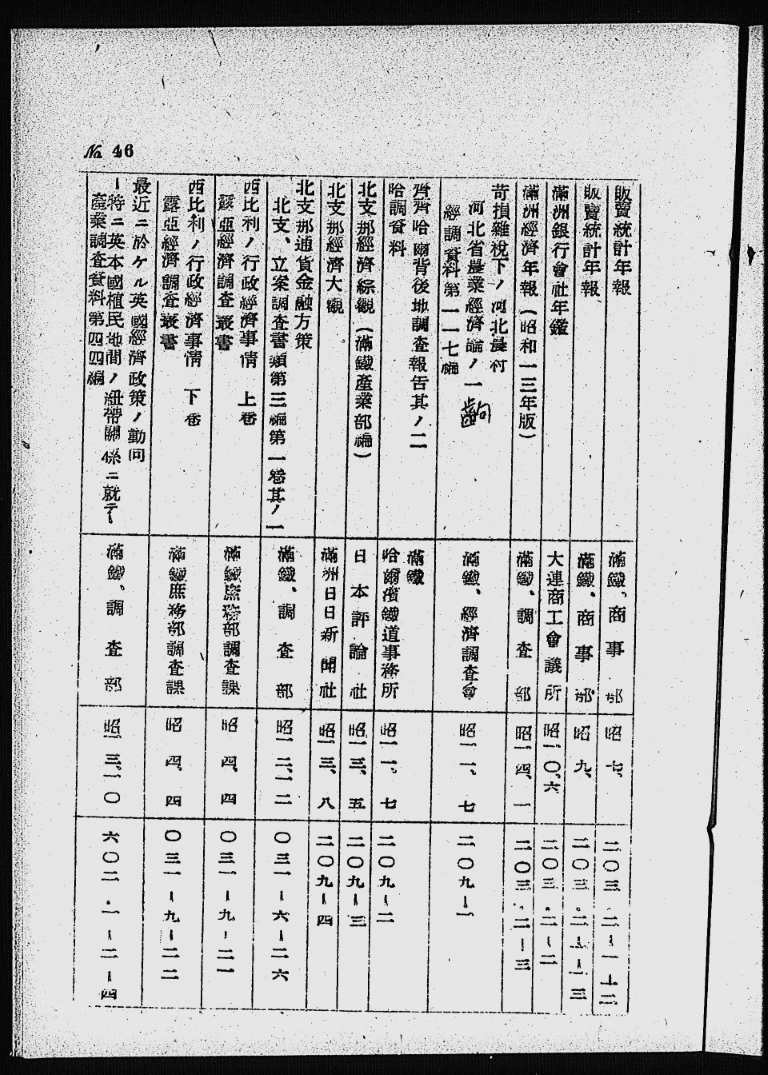 No. 46
販賣統計年報
滿鐵、商事部
昭七、
二〇三.二–一
販賣統計年報
滿鐵、商事部
昭九、
二〇三.二
滿洲銀行會社年鑑
大連商工會議所
昭一〇、六
二〇三.二–二
滿洲經濟年報(昭和一三年版)
滿鐵、調査部
昭一四、一
二〇三.二–三
苛損雜稅下ノ河北農村
河北省農業經濟論ノ一
經調資料第一一七編
滿鐵、經濟調査會
昭一一、七
二〇九–一
齊齊哈爾背後地調査報告其ノ二
哈調資料
滿鐵
哈爾濱鐵道事務所
昭一一、七
二〇九–二
北支那經濟綜觀(滿鐵產業部編)
日本評論社
昭一三、五
二〇九–三
北支那經濟大觀
滿洲日日新聞社
昭一三、八
二〇九–四
北支那通貨金融方策
北支、立案調査書類第三編第一卷其ノ一
滿鐵、調査部
昭一二、一二
〇三一–六–二六
西比利ノ行政經濟事情 上卷
露亞經濟調査叢書
滿鐵庶務部調査課
昭四、四
〇三一–九–二一
西比利ノ行政經濟事情 下卷
露亞經濟調査叢書
滿鐵庶務部調査課
昭四、四
〇三一–九–二二
最近ニ於ケル英國經濟政策ノ動向
–特ニ英本國植民地間ノ紐帶關係ニ就テ–
產業調査資料第四四編
滿鐵、調査部
昭一三、一〇
六〇二.一–二–四